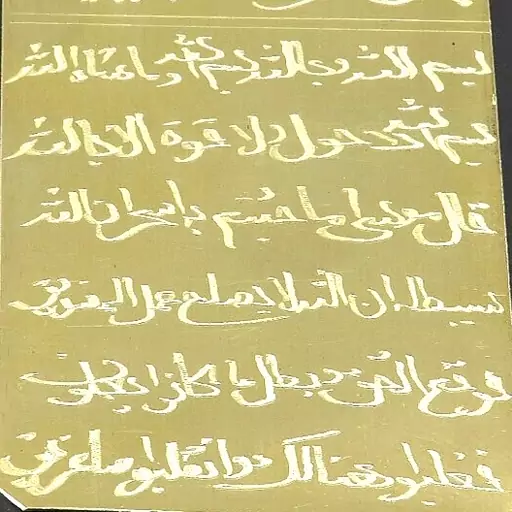 بسم الله وبالله بسم الله وما شاء الله
بسم الله لا حول ولا قوة الا بالله
قال موسى ما جئتم به السحر ان الله
سيبطله ان الله لا يصلح عمل المفسدين
فوقع الحق وبطل ما كانوا يعملون
فغلبوا هنالك وانقلبوا صاغرين